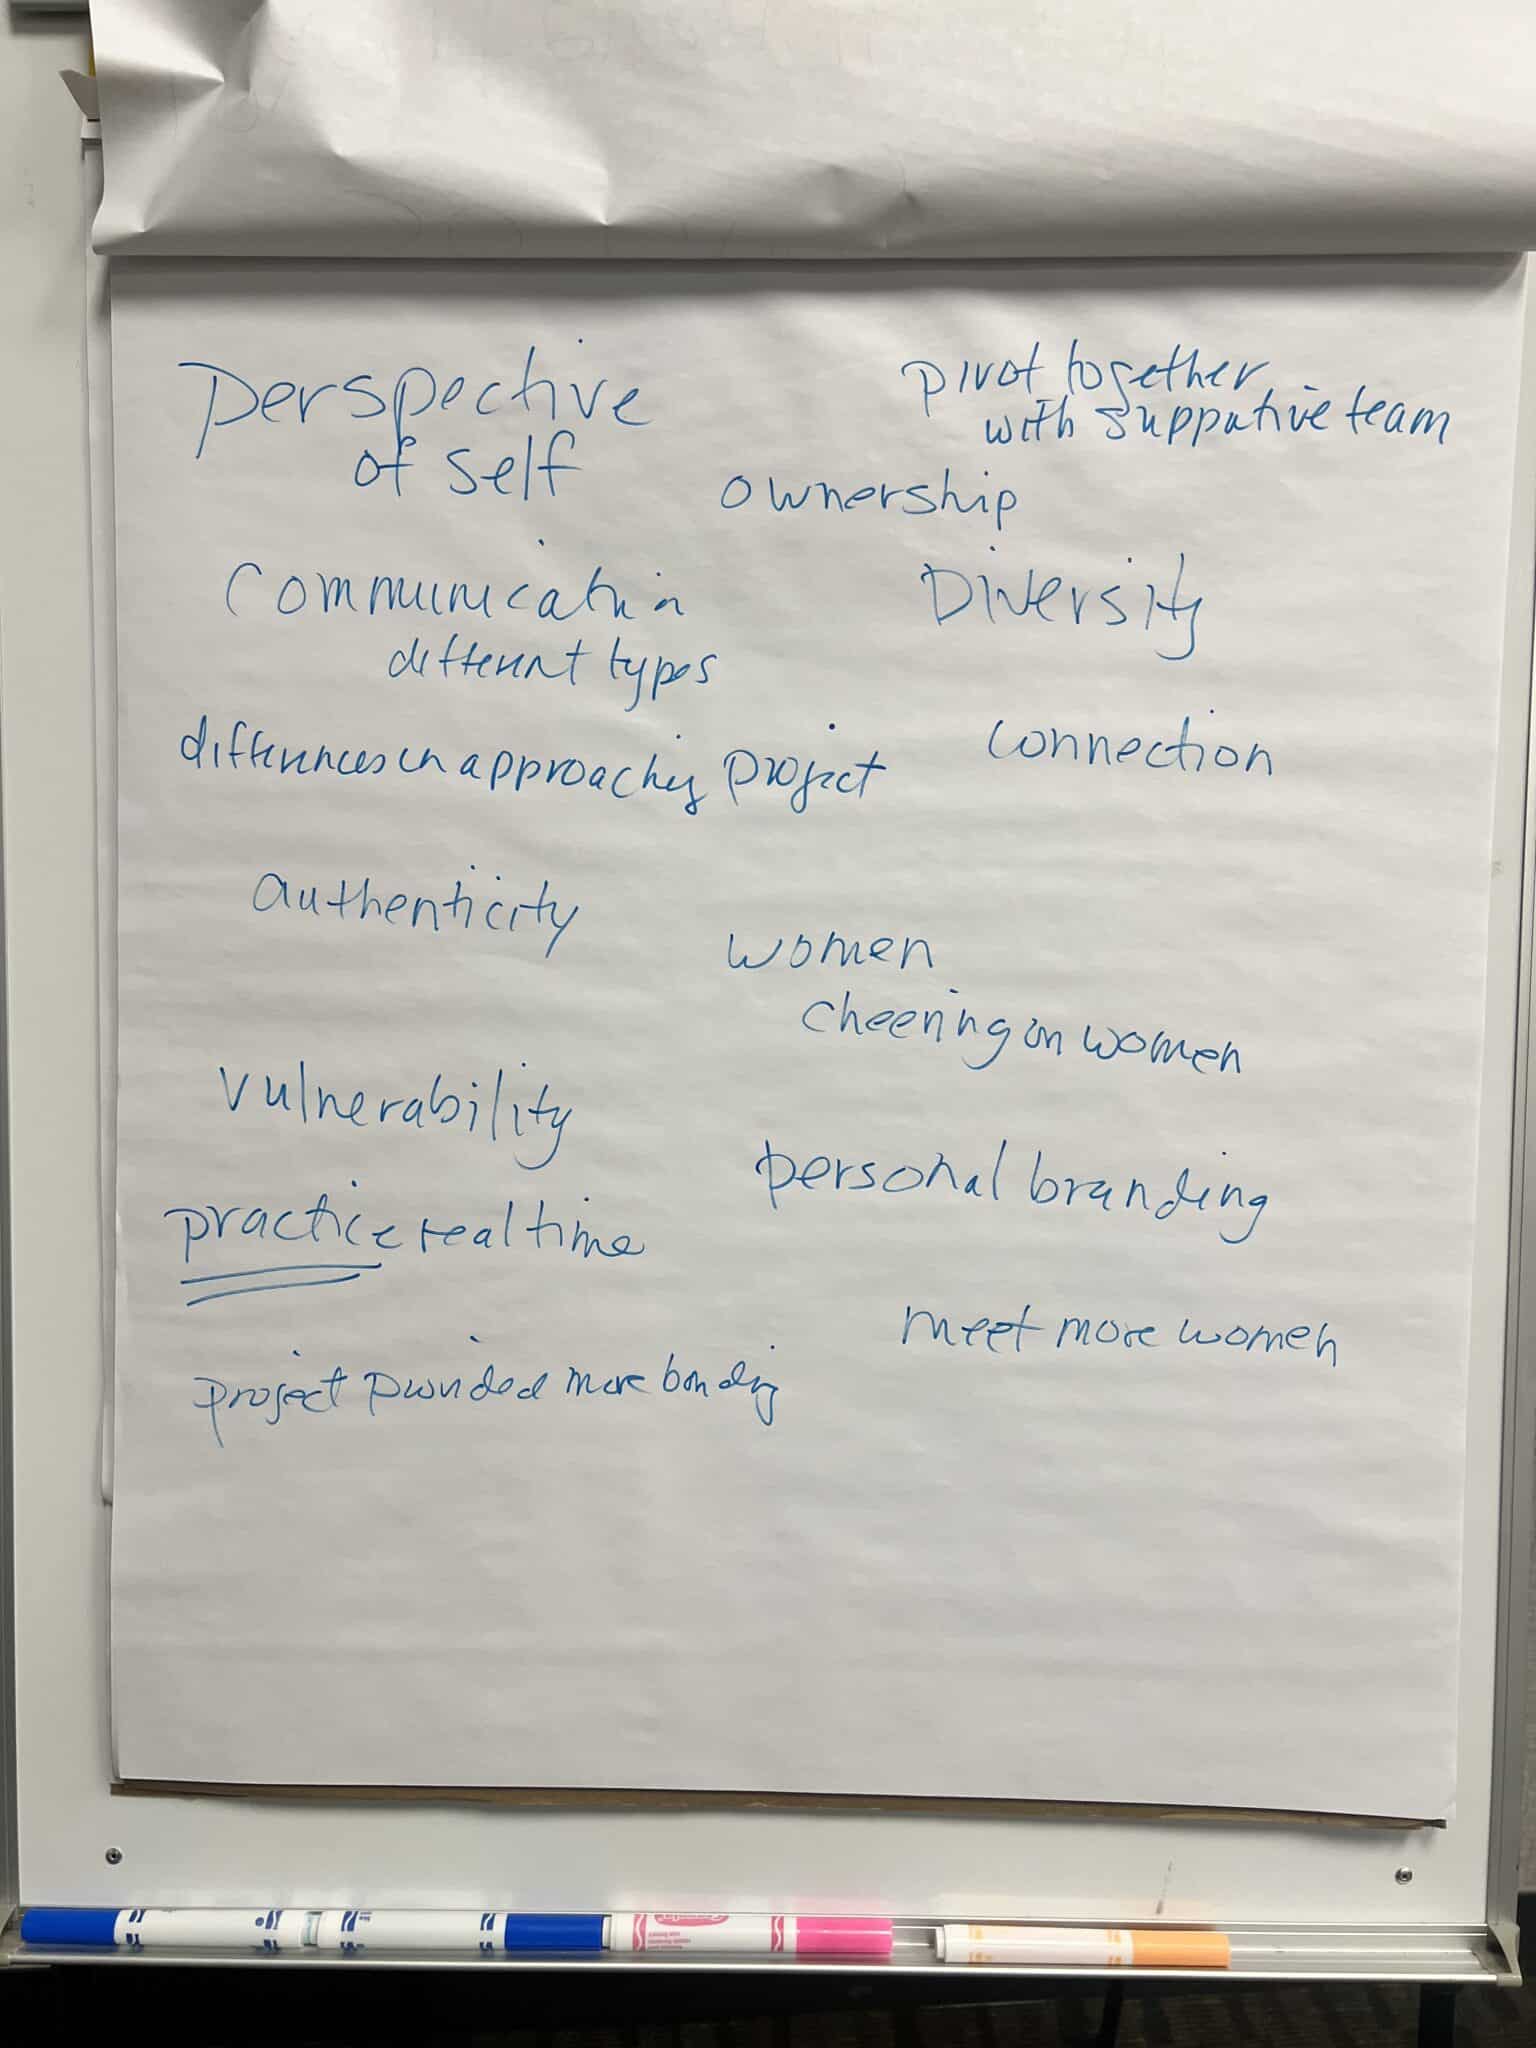 perspective
of self
pivot together
with supportive team
ownership
Communication
different types
Diversity
differences in approaching project
connection
authenticity
women
cheering on women
vulnerability
personal branding
practice real time
meet more women
project provided more bonding